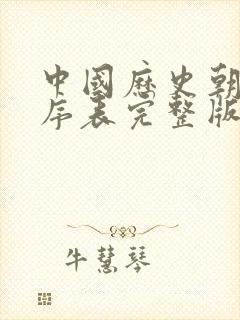 中國歷史朝
序表完整版
牛慧琴